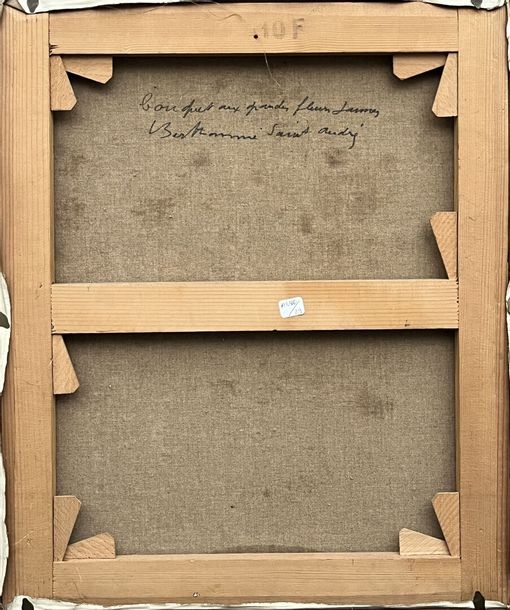 10F
Bouquet aux grandes fleurs jaunes
Berthommé Saint André